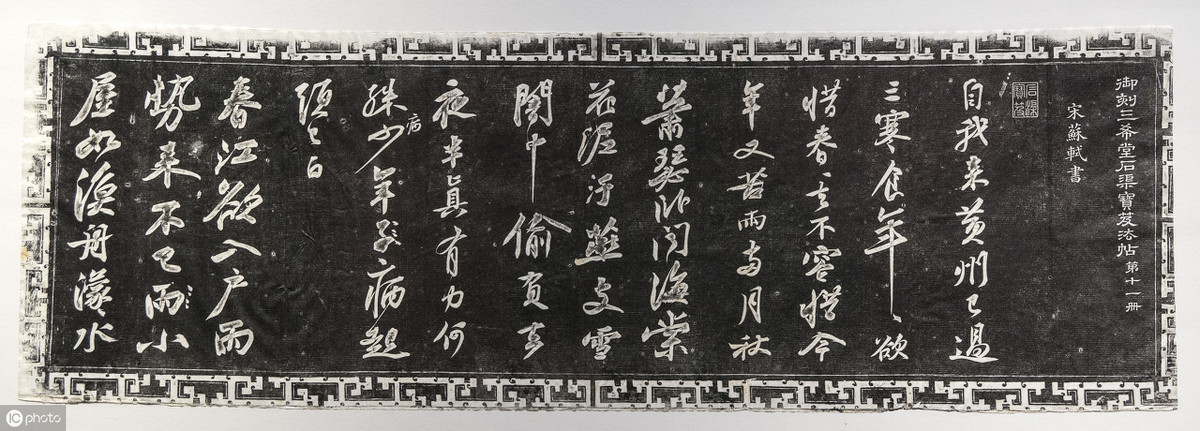 御刻三希堂石渠寶笈法帖 第十一冊
宋蘇軾書
石渠寶笈
自我來黃州已過
三寒食年〻欲
惜春〻去不容惜今
年又苦雨兩月秋
蕭瑟卧聞海棠
花泥汙燕支雪
闇中偷負去
夜半真有力何
殊病少年子病起
頭已白
春江欲入戶雨
勢來不已雨小
屋如漁舟濛〻水
IC photo